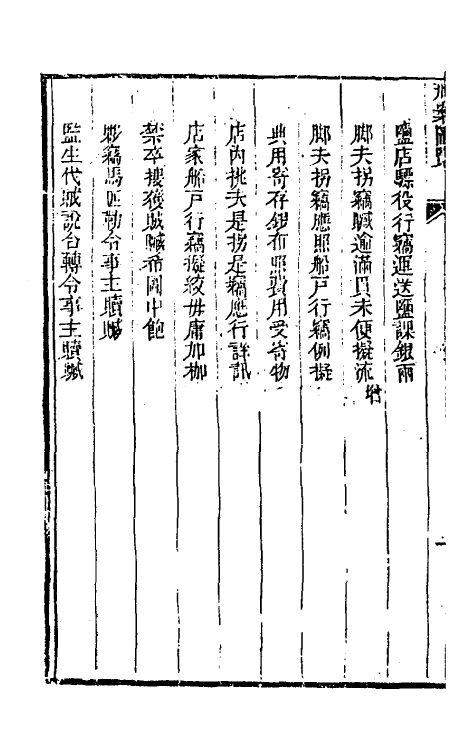 鹽店縣役行竊運送鹽課銀兩
脚夫拐竊贓逾滿貫未便擬流 增
脚夫拐竊應照船戶行竊例擬
典用寄存銀布照費用受寄物
店內挑夫是拐是竊應行詳訊
店家船戶行竊擬絞毋庸加枷
禁卒搜獲賊贓希圖中飽
夥竊馬匹勒令事主贖贓
監生代賊說合轉令事主贖贓